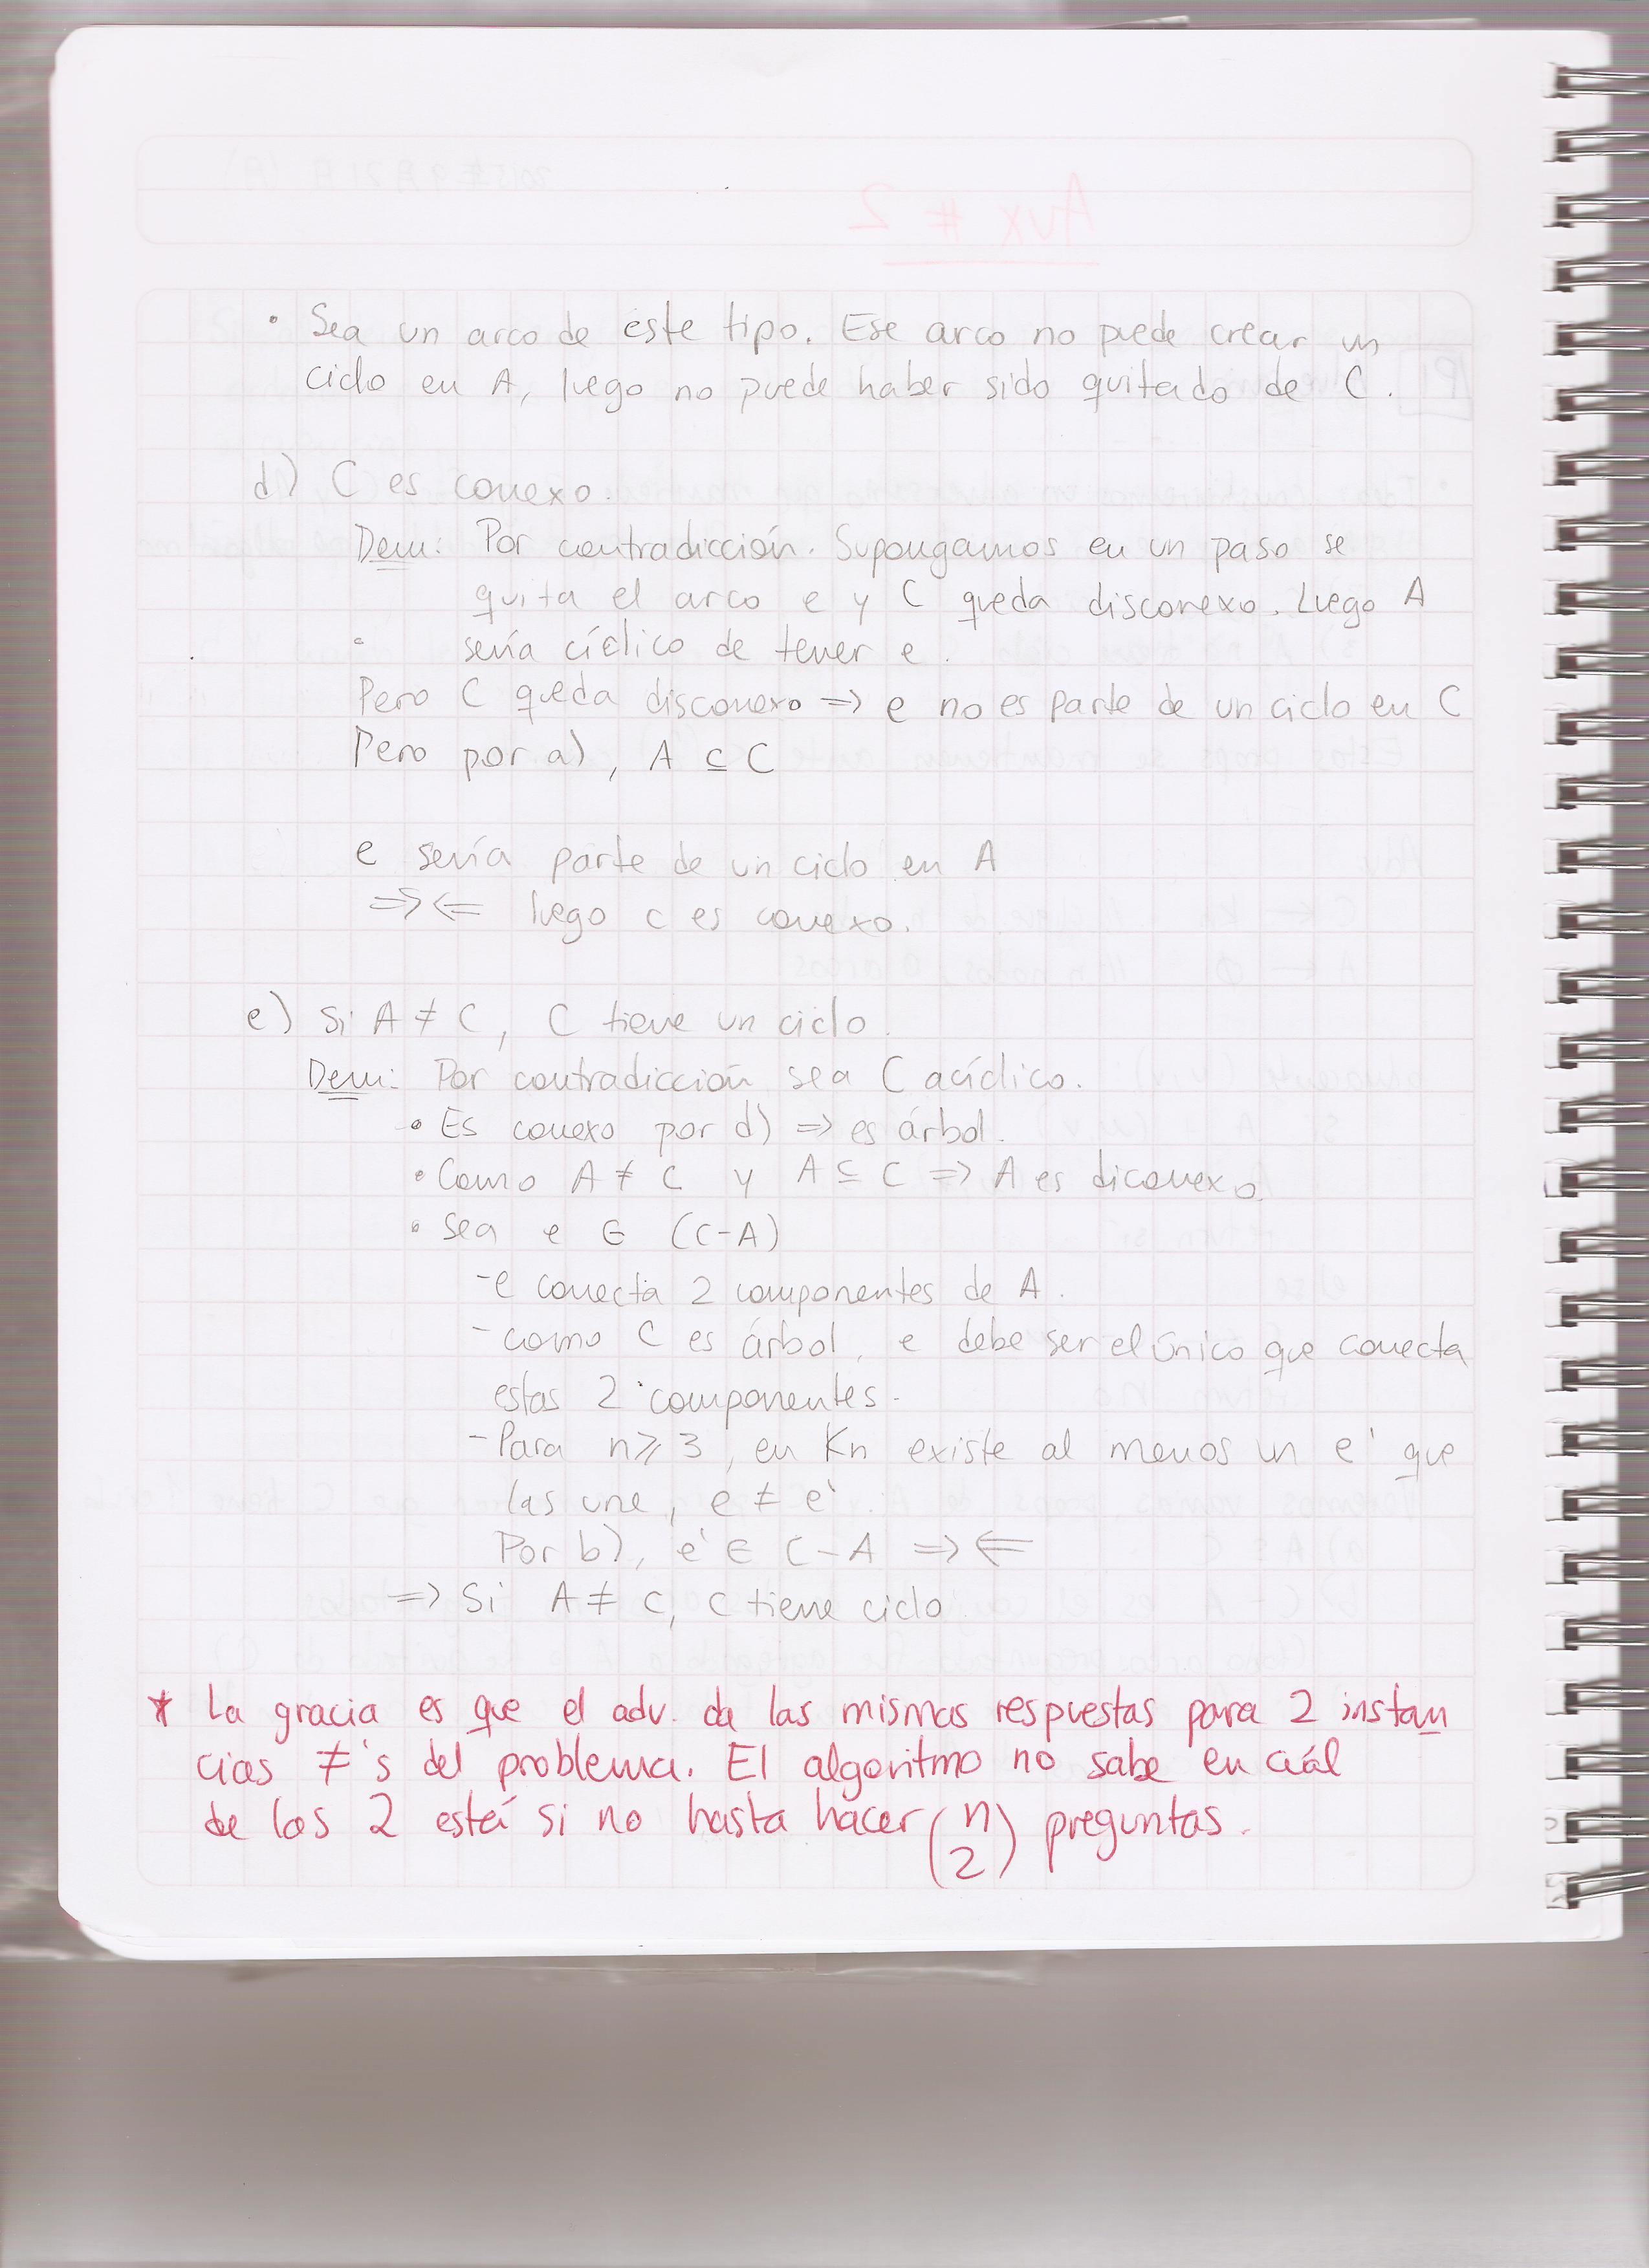 • Sea un arco de este tipo. Ese arco no puede crear un
ciclo en A, luego no puede haber sido quitado de C.
d) C es conexo.
Dem: Por contradicción. Supongamos en un paso se
quita el arco e y C queda disconexo. Luego A
sería cíclico de tener e.
Pero C queda disconexo => e no es parte de un ciclo en C
Pero por a), A ⊆ C
e sería parte de un ciclo en A
=><= luego c es conexo.
e) Si A ≠ C, C tiene un ciclo.
Dem: Por contradicción sea C acíclico.
• Es conexo por d) => es árbol.
• Como A ≠ C y A ⊆ C => A es diconexo.
• Sea e ∈ (C-A)
- e conecta 2 componentes de A.
- como C es árbol, e debe ser el único que conecta
estas 2 componentes.
- Para n ⩾ 3, en Kn existe al menos un e' que
las une, e ≠ e'
Por b), e' ∈ C-A =><=
=> Si A ≠ C, C tiene ciclo
* La gracia es que el adv. da las mismas respuestas para 2 instan
cias ≠'s del problema. El algoritmo no sabe en cuál
de las 2 está si no hasta hacer (n 2) preguntas.